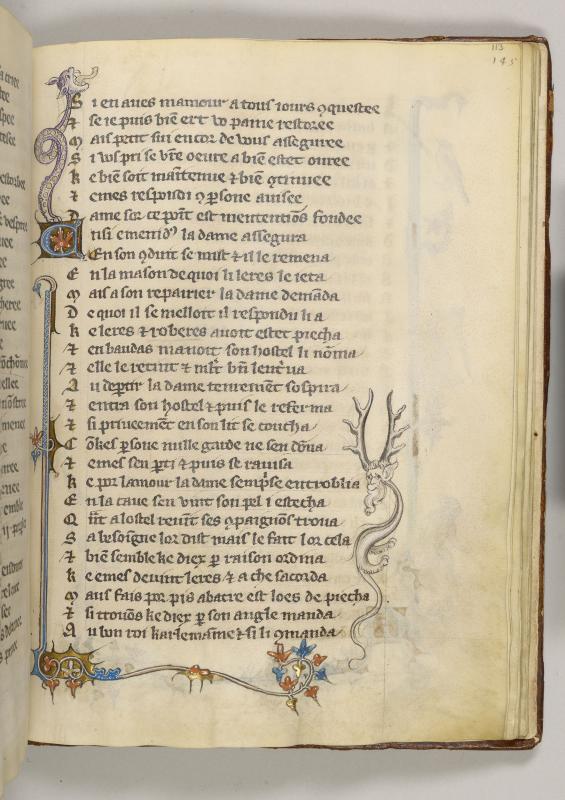 113
145
Si en aves mamour a tous iours ꝯquestee
⁊ se ie puis bien ert vo pame restoree
Mais petit sui encor de vous asseguree
Si vos pri se vr̄e oeure a bien estet ouree
Ke bien soit maītenue ⁊ bien ꝯtinuee
⁊ emes respondi ꝯ ꝑsone auisee
Dame sor ce poīt est mententiōs fondee
Ensi emenidꝰ la dame assegura
En son ꝯduit se mist ⁊ il le remena
En la mason de quoi li leres le ieta
Mais a son repairier la dame demāda
De quoi il se melloit il respondu li a
Ke leres ⁊ roberes auoit estet piecha
⁊ en baudas manoit son hostel li nōma
⁊ elle le retint ⁊ bn̄
Au deꝑtir la dame tenremēt sospira
⁊ entra son hostel ⁊ puis le referma
⁊ si priueemēt en son lit se coucha
Cōkes ꝑsone nulle garde ne sen dōna
⁊ emes sen ꝑti ⁊ puis se rauisa
Ke por lamour la dame sempˢse entroblia
En la caue sen vint son pel i estecha
Qūt a lostel reuīt ses ꝯpaignōs troua
Sa besoīgne lor dist mais le fait lor cela
⁊ biē semble ke diex ꝑ raison ordina
Ke emes deuint leres ⁊ a che sacorda
Mais fais por pis abatre est loes de piecha
⁊ si trouōs ke diex ꝑ son angle manda
Au bon roi karlemaīne ⁊ si li ꝯmanda